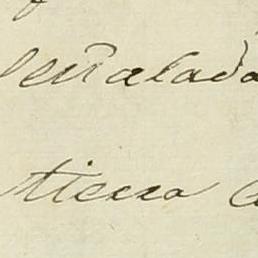 señalada
tierra